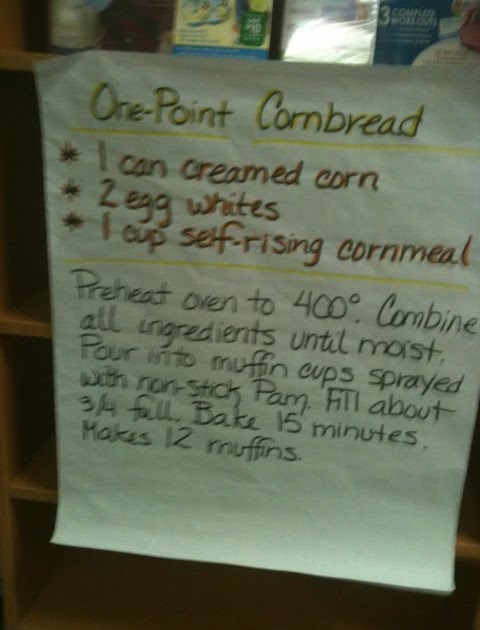 3 COMPLETE
WORKOUTS
One-Point Cornbread
* 1 can creamed corn
* 2 egg whites
* 1 cup self-rising cornmeal
Preheat oven to 400°. Combine
all ingredients until moist.
Pour into muffin cups sprayed
with non-stick Pam. Fill about
3/4 full. Bake 15 minutes.
Makes 12 muffins.